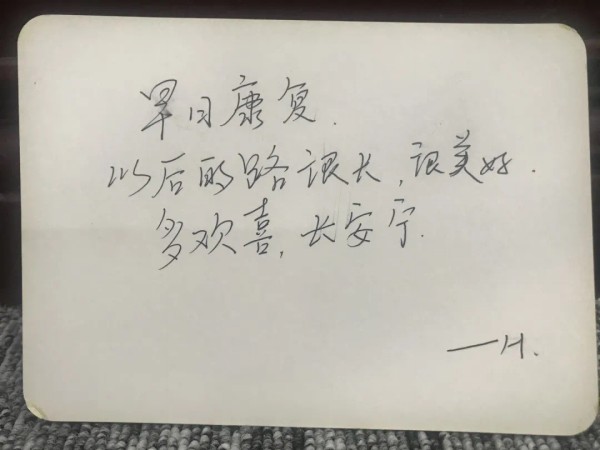 早日康复.
以后的路很长,很美好.
多欢喜,长安宁.
—H.